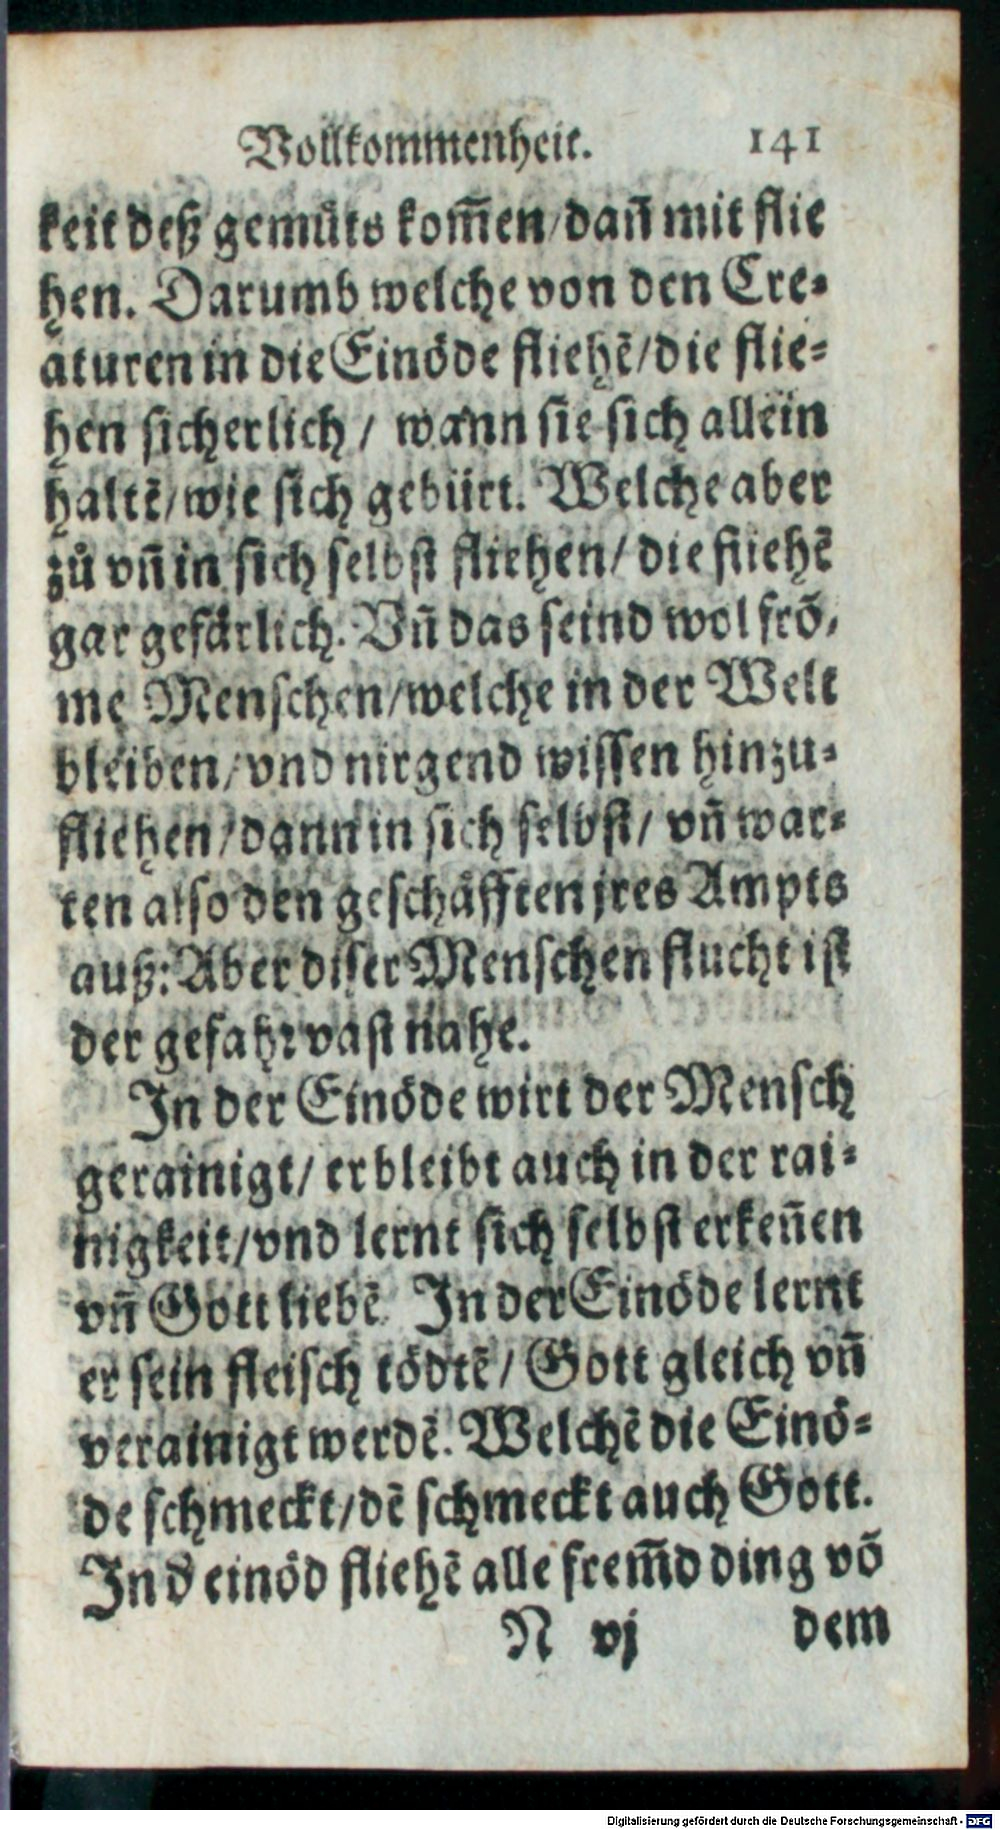 Vollkommenheit. 141
keit deß gemüts kom̃en/dañ mit flie
hen. Darumb welche von den Cre-
aturen in die Einöde fliehẽ/die flie-
hen sicherlich/ wann sie sich allein
haltẽ/wie sich gebürt. Welche aber
zů vñ in sich selbst fliehen/ die fliehẽ
gar gefärlich. Vñ das seind wol frõ,
me Menschen/welche in der Welt
bleiben/vnd nirgend wissen hinzu-
fliehen/dann in sich selbst/ vñ war-
ten also den geschäfften jres Ampts
auß: Aber diser Menschen flucht ist
der gefahr vast nahe.
In der Einöde wirt der Mensch
gerainigt/ er bleibt auch in der rai-
nigkeit/vnd lernt sich selbst erkeñen
vñ Gott liebẽ. In der Einöde lernt
er sein fleisch tödtẽ/ Gott gleich vñ
verainigt werdẽ. Welchẽ die Einö-
de schmeckt/dẽ schmeckt auch Gott.
In d̕ einöd fliehẽ alle frem̃d ding võ
N vj dem
Digitalisierung gefördert durch die Deutsche Forschungsgemeinschaft - DFG